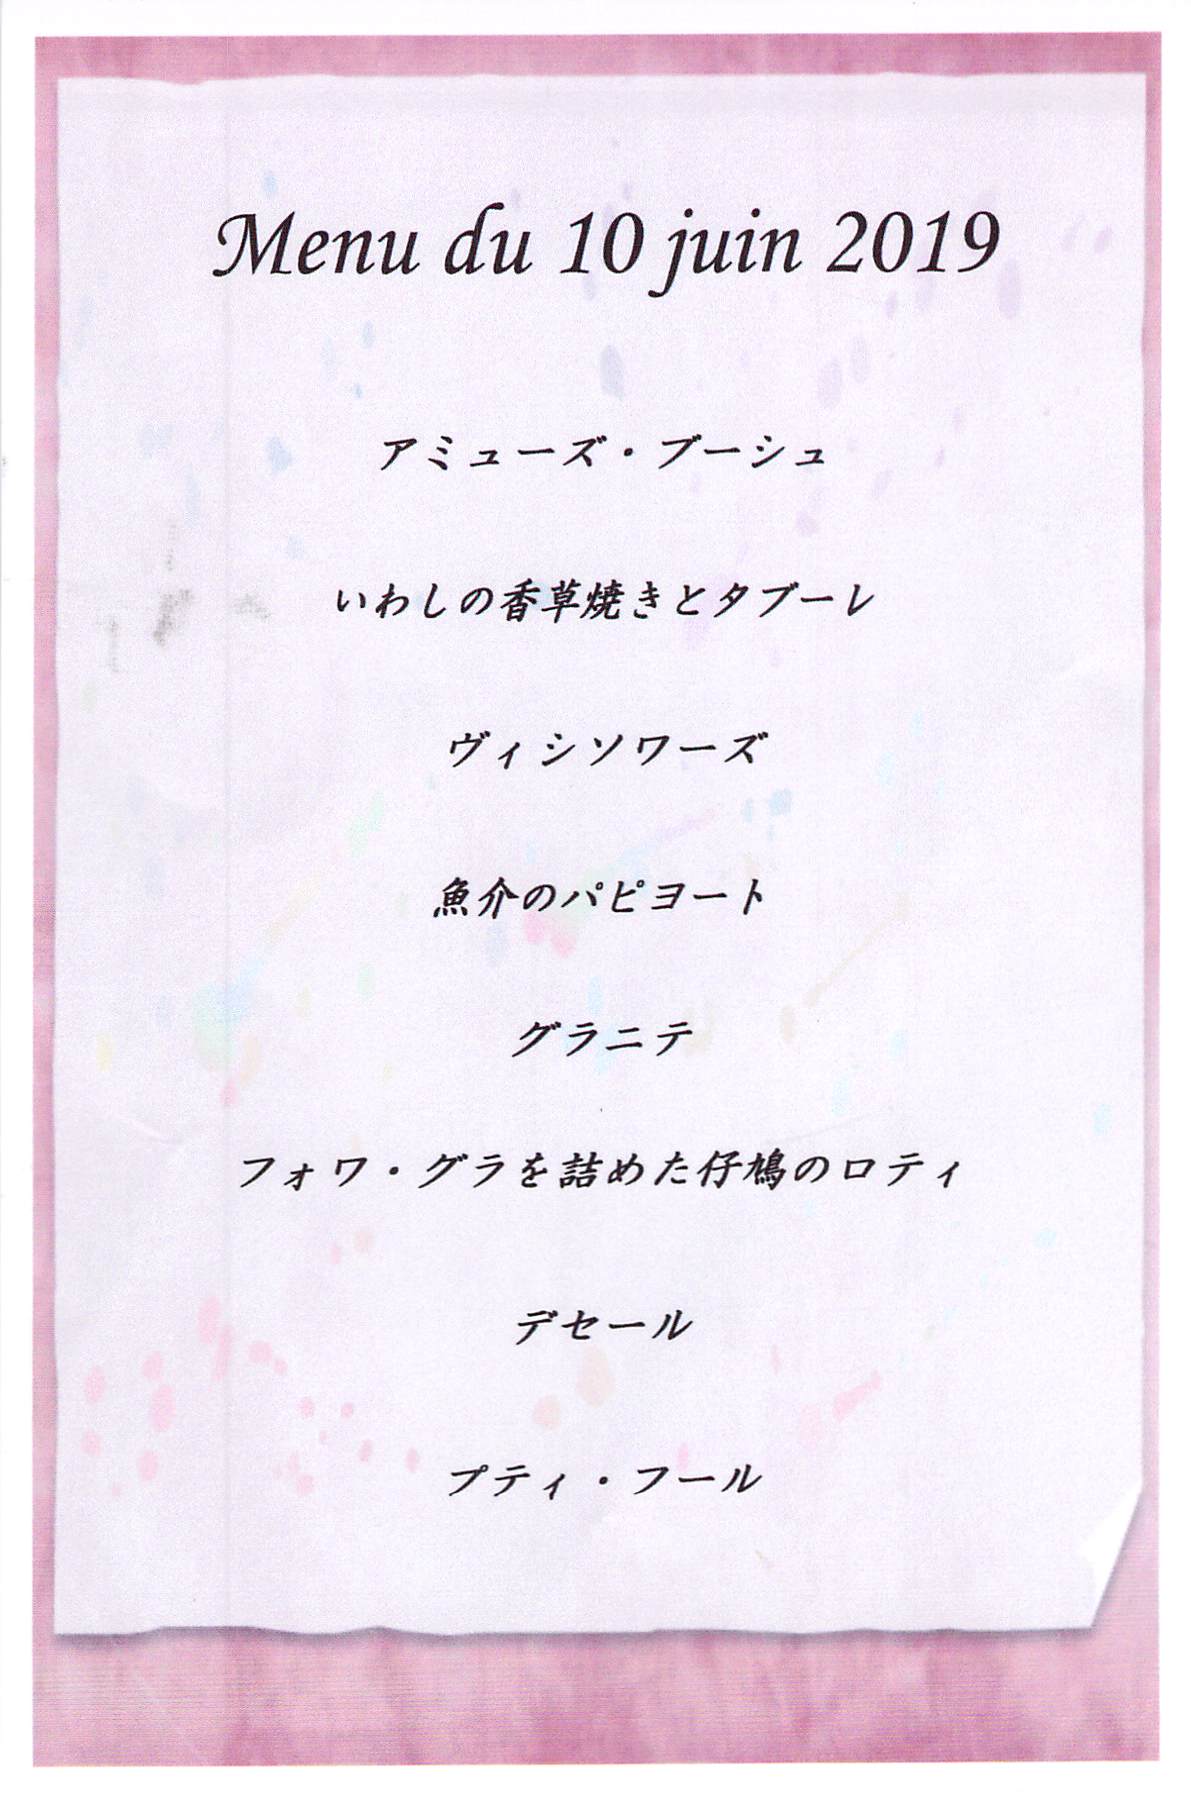 Menu du 10 juin 2019
アミューズ・ブーシュ
いわしの香草焼きとタブーレ
ヴィシソワーズ
魚介のパピヨート
グラニテ
フォワ・グラを詰めた仔鳩のロティ
デセール
プティ・フール